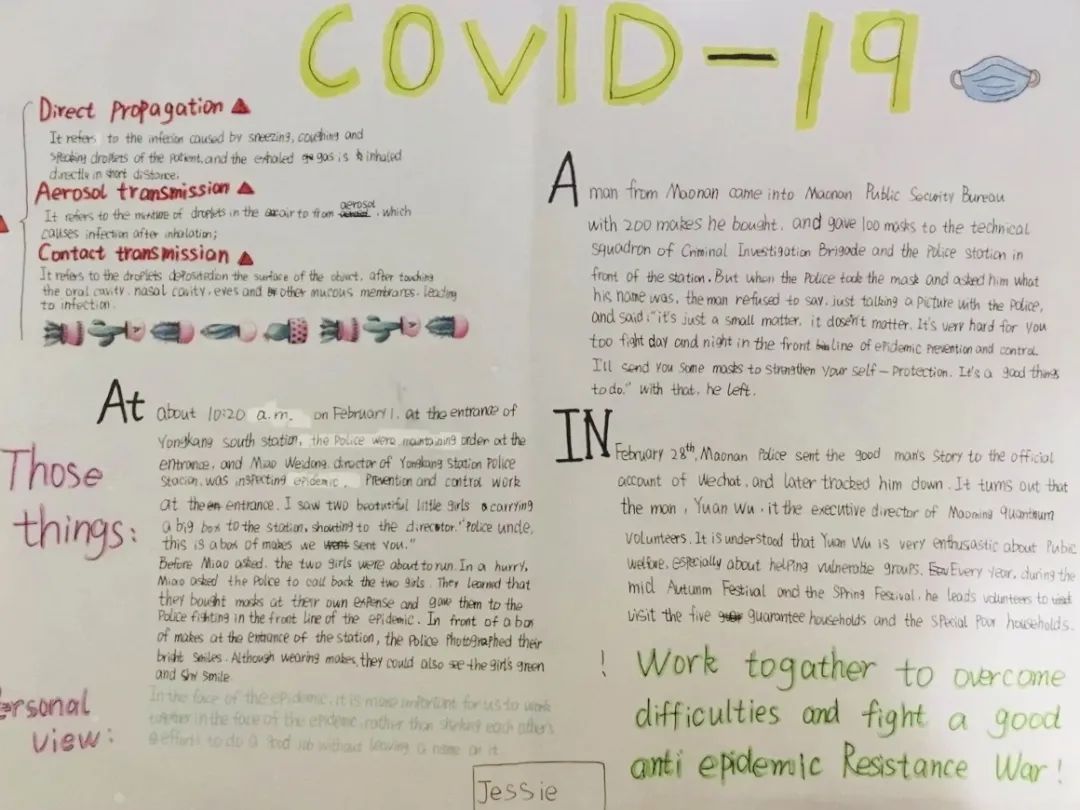 COVID-19
Direct Propagation
It refers to the infection caused by sneezing, coughing and
speaking droplets of the patient, and the exhaled gas is inhaled
directly in short distance;
Aerosol transmission
It refers to the mixture of droplets in the air to from aerosol, which
causes infection after inhalation;
Contact transmission
It refers to the droplets deposited on the surface of the object. after touching
the oral cavity. nasal cavity. eyes and other mucous membranes. leading
to infection.
A man from Maonan came into Maonan Public Security Bureau
with 200 makes he bought. and gave 100 masks to the technical
squadron of Criminal Investigation Brigade and the Police station in
front of the station. But when the Police took the mask and asked him what
his name was, the man refused to say. just talking a Picture with the Police,
and said: "it's just a small matter. it dosen't matter. It's very hard for you
too fight day and night in the front line of epidemic Prevention and control.
I'll send you some masks to strengthen your self-Protection. It's a good things
to do." With that, he left.
Those things:
At about 10:20 a.m. on February 1. at the entrance of
Yongkang south station, the Police were maintaining order at the
entrance, and Miao Weidong. director of Yongkang Station Police
Stacion, was inspecting epidemic Prevention and control work
at the entrance. I saw two beautiful little girls carrying
a big box to the station, shouting to the director. "Police uncle,
this is a box of makes we sent you."
Before Miao asked. the two girls were about to run. In a hurry,
Miao asked the Police to call back the two girls. They learned that
they bought masks at their own expense and gave them to the
Police fighting in the front line of the epidemic. In front of a box
of makes at the entrance of the station, the Police Photographed their
bright smiles. Although wearing makes, they could also see the girl's green
and shy smile
IN February 28th, Maonan Police sent the good man's story to the official
account of Wechat, and later tracked him down. It turns out that
the man, Yuan Wu. it the executive director of Maoming quantnum
volunteers. It is understood that Yuan Wu is very enthusastic about Pubic
welfare, especially about helping vulnerable groups. Every year, during the
mid Autumn Festival and the Spring Festival, he leads volunteers to visit
visit the five guarantee households and the special Poor households.
ersonal view:
In the face of the epidemic, it is more important for us to work
together in the face of the epidemic, rather than each other's
efforts to do a good job without leaving a name on it
! Work togather to overcome
difficulties and fight a good
anti epidemic Resistance War!
Jessie